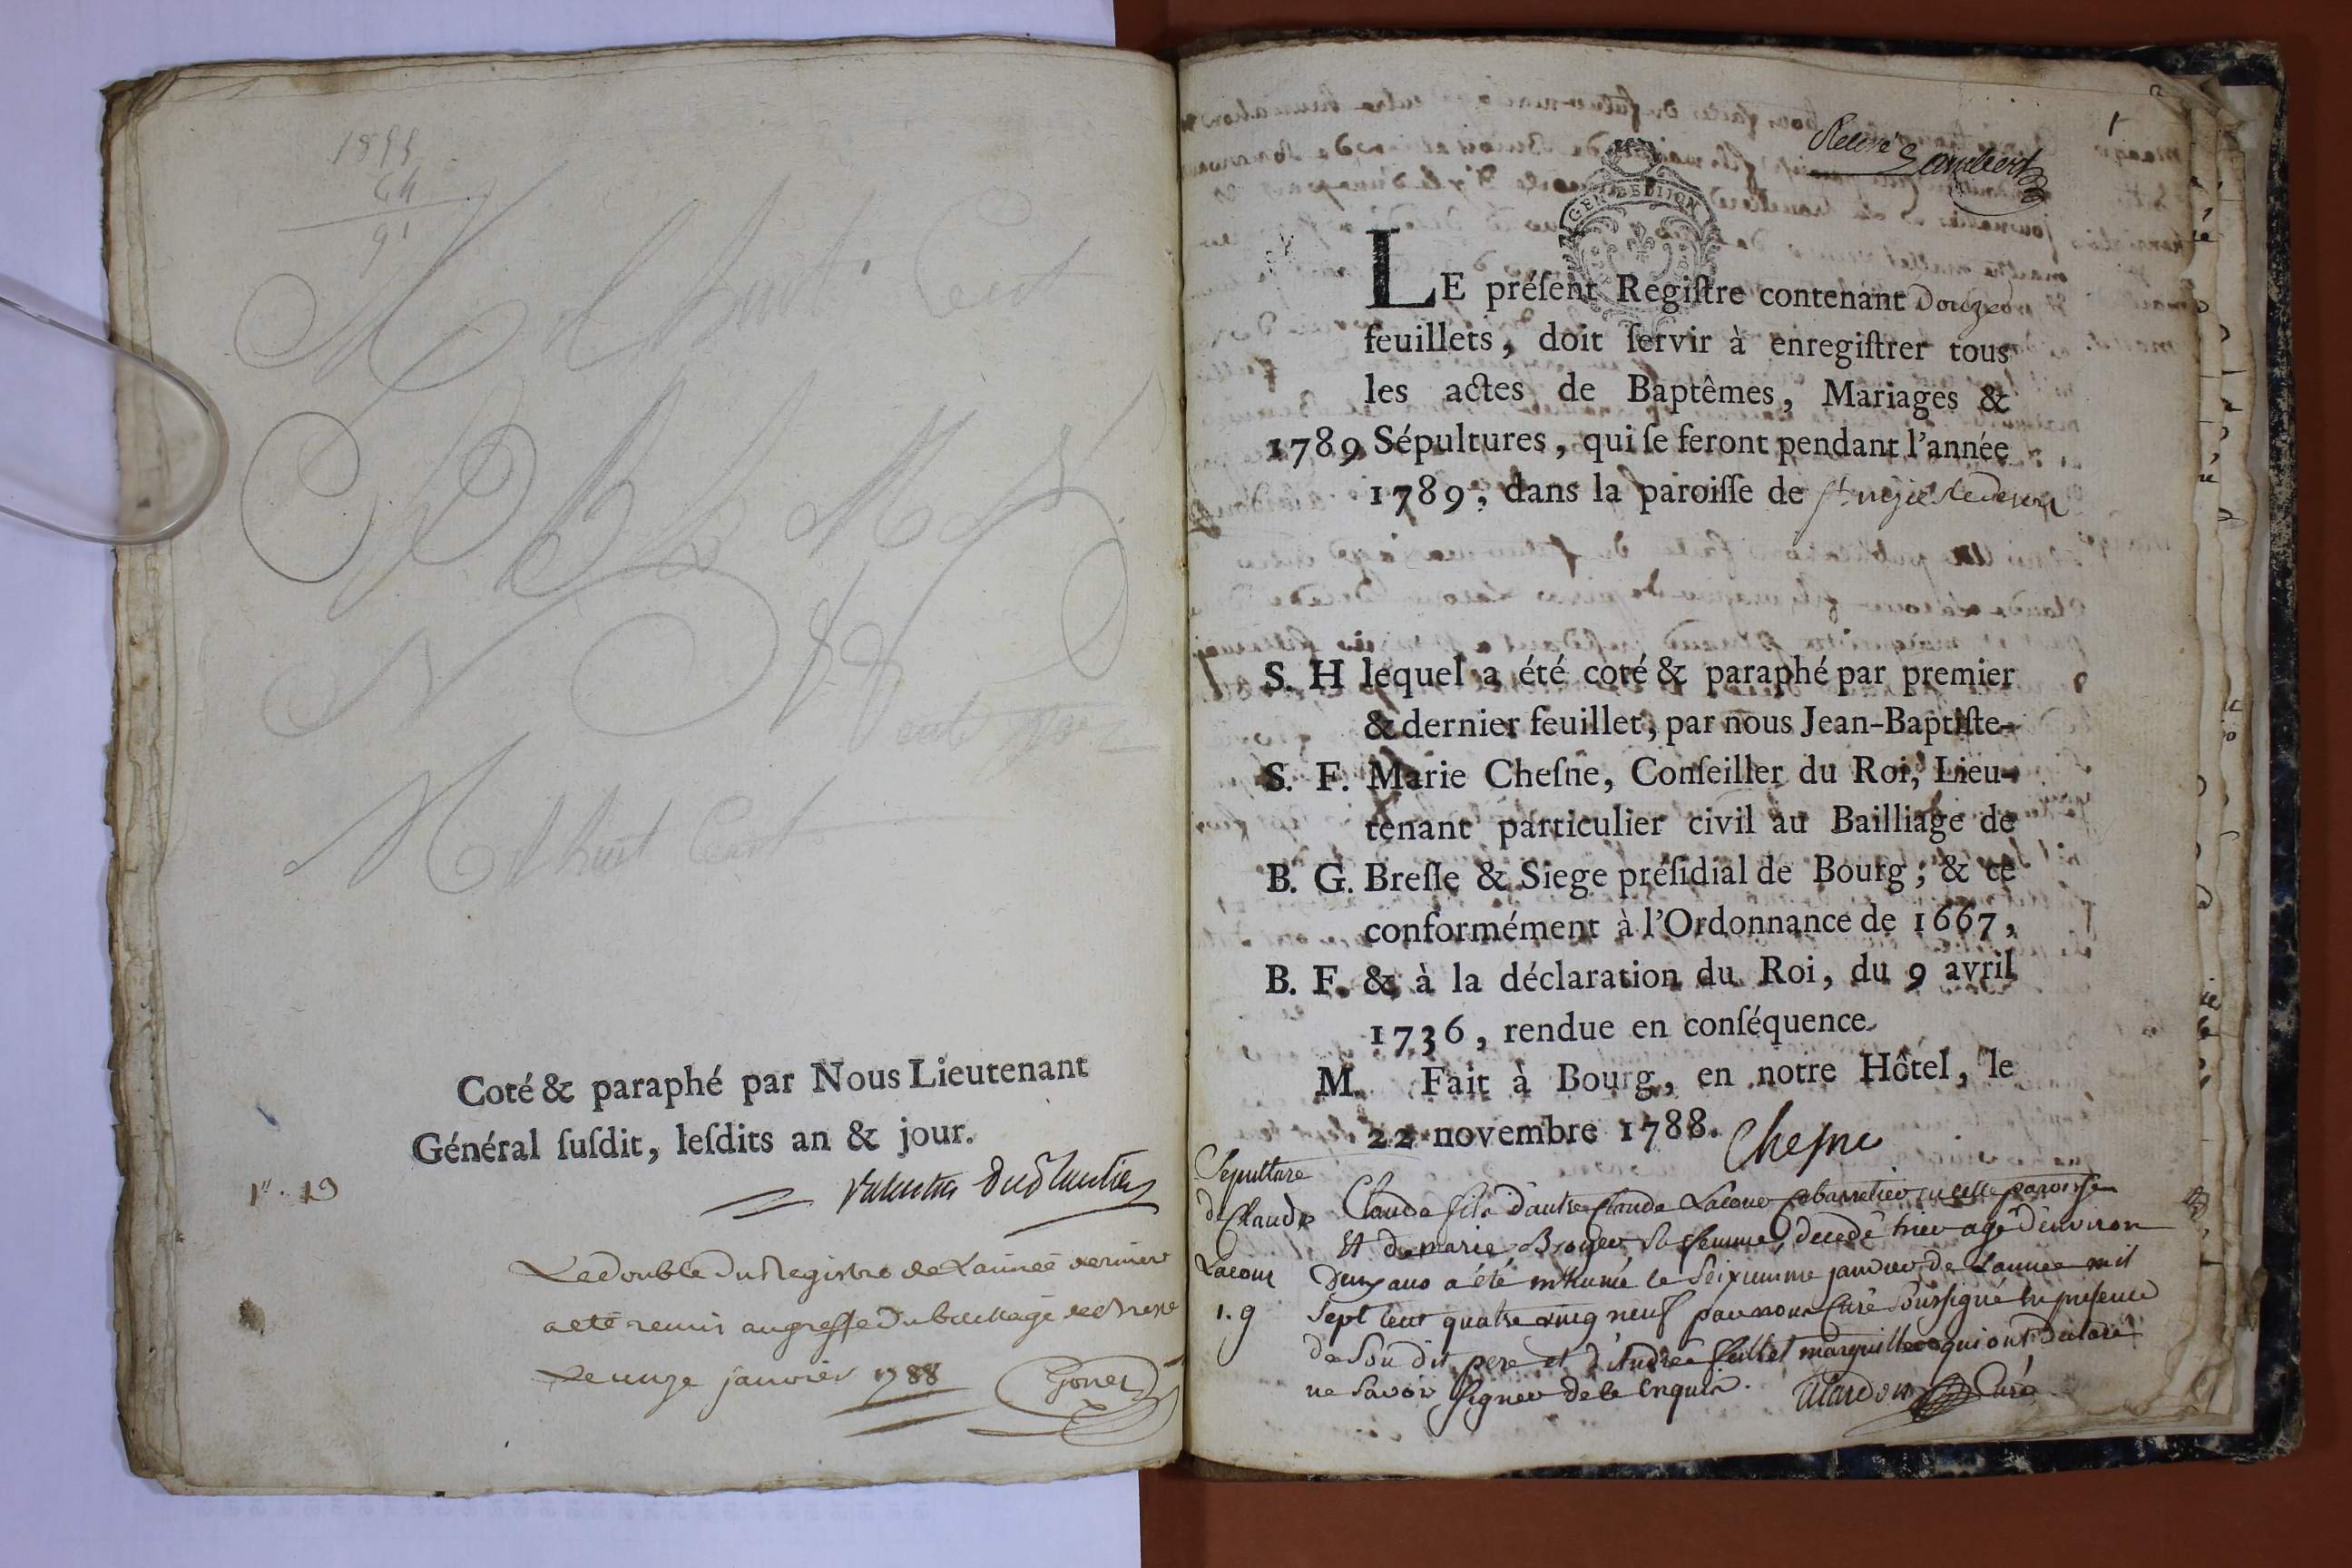 1855
64
91
Mil huit Cent
Mil huit Cent
Coté & paraphé par Nous Lieutenant
Général ſuſdit, leſdits an & jour.
Le double du Registre de L'année derniere
a eté remis au greffe du bailliage de Bresse
Le onze janvier 1788 Gonet
1
Relevé Lambert
GEN. DE DIJON
LE préſent Regiſtre contenant Douze
feuillets, doit ſervir à enregiſtrer tous
les actes de Baptêmes, Mariages &
1789 Sépultures, qui ſe feront pendant l'année
1789, dans la paroiſſe de St
S. H lequel a été coté & paraphé par premier
& dernier feuillet, par nous Jean-Baptiſte-
S. F. Marie Cheſne, Conſeiller du Roi, Lieu-
tenant particulier civil au Bailliage de
B. G. Breſſe & Siege préſidial de Bourg; & ce
conformément à l'Ordonnance de 1667,
B. F. & à la déclaration du Roi, du 9 avril
1736, rendue en conſéquence.
M. Fait à Bourg, en notre Hôtel, le
22 novembre 1788. Chesne
Sepulture
de Claude
Lacour
1. 9
Claude fils d'autre Claude Lacour Cabarretier en cette paroisse
Et de marie Broyer sa femme, decedé hier agé d'environ
Deux ans a été inhumé le Seizieme janvier de L'année mil
Sept Cent quatre vingt neuf par nous Curé Soussigné En presence
de Son dit pere et d'André marguillier qui ont Declaré
ne Savoir Signer de ce Enquis. Curé